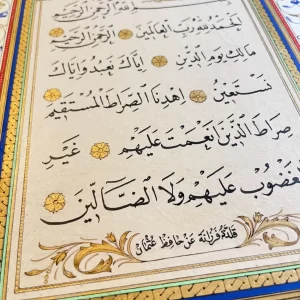 اللّٰهِ الرَّحْمٰنِ الرَّحِيمِ
اَلْحَمْدُ لِلّٰهِ رَبِّ الْعَالَمِينَ الرَّحْمٰنِ الرَّحِيمِ
مَالِكِ يَوْمِ الدِّينِ اِيَّاكَ نَعْبُدُ وَاِيَّاكَ
نَسْتَعِينُ اِهْدِنَا الصِّرَاطَ الْمُسْتَقِيمَ
صِرَاطَ الَّذِينَ اَنْعَمْتَ عَلَيْهِمْ غَيْرِ
لْمَغْضُوبِ عَلَيْهِمْ وَلَا الضَّالِّينَ
عن حافظ عثمان